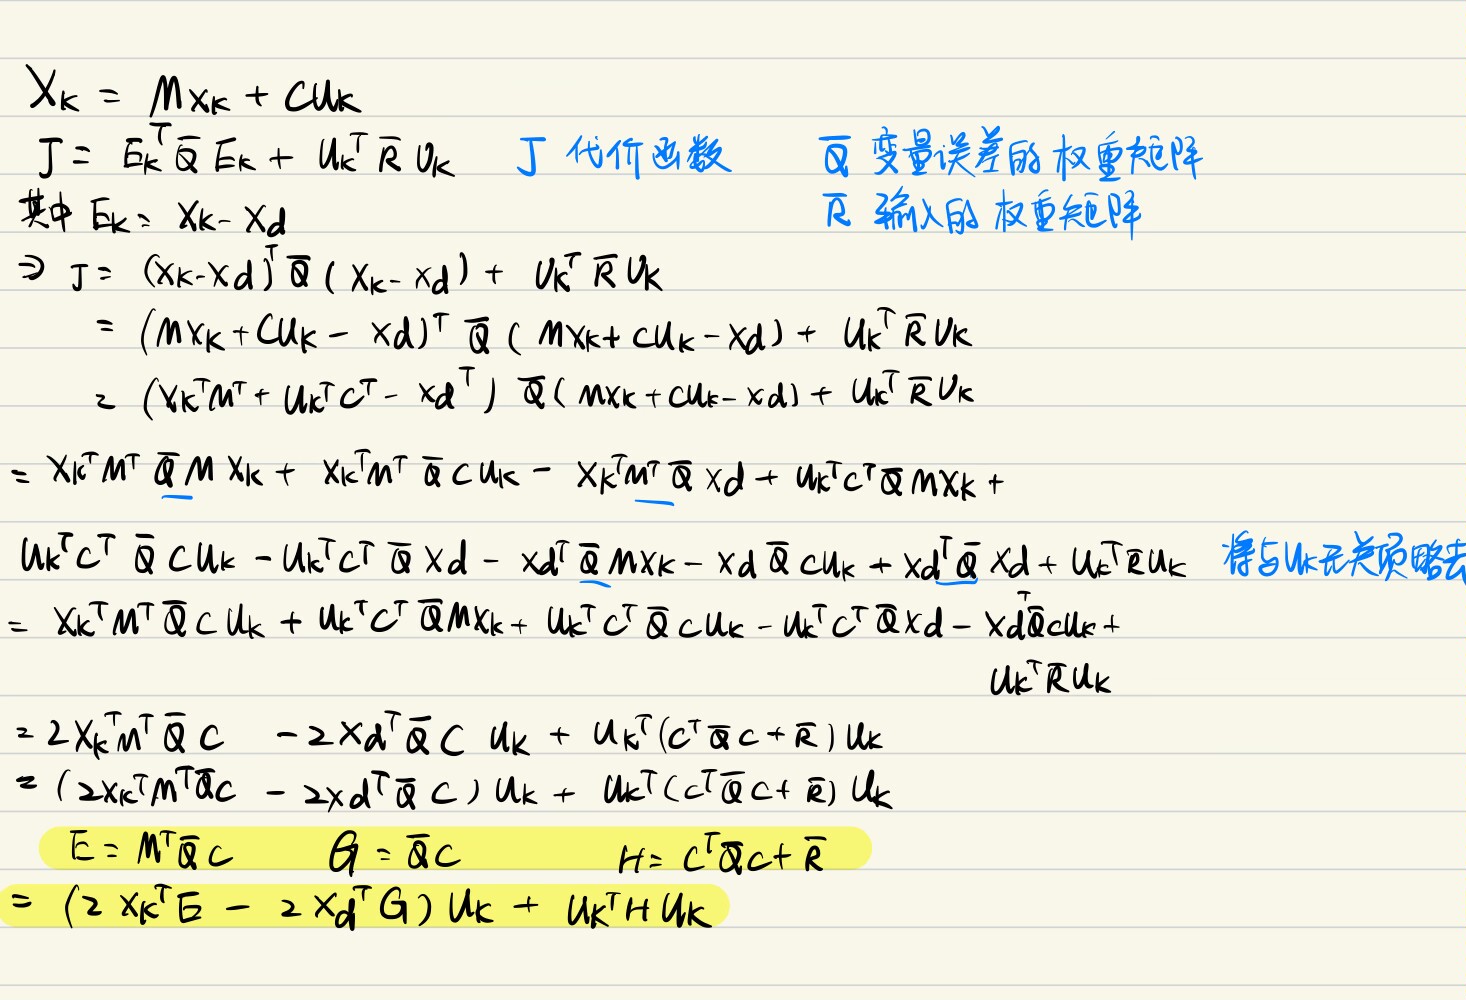 X_k = M x_k + C U_k
J = E_k^T Q̄ E_k + U_k^T R̄ U_k J 代价函数 Q̄ 变量误差的权重矩阵
其中 E_k = X_k - X_d R̄ 输入的权重矩阵
⇒ J = (X_k - X_d)^T Q̄ (X_k - X_d) + U_k^T R̄ U_k
= (M x_k + C U_k - X_d)^T Q̄ (M x_k + C U_k - X_d) + U_k^T R̄ U_k
= (x_k^T M^T + U_k^T C^T - X_d^T) Q̄ (M x_k + C U_k - X_d) + U_k^T R̄ U_k
= x_k^T M^T Q̄ M x_k + x_k^T M^T Q̄ C U_k - x_k^T M^T Q̄ X_d + U_k^T C^T Q̄ M x_k +
U_k^T C^T Q̄ C U_k - U_k^T C^T Q̄ X_d - X_d^T Q̄ M x_k - X_d Q̄ C U_k + X_d^T Q̄ X_d + U_k^T R̄ U_k 将与U_k无关项略去
= x_k^T M^T Q̄ C U_k + U_k^T C^T Q̄ M x_k + U_k^T C^T Q̄ C U_k - U_k^T C^T Q̄ X_d - X_d^T Q̄ C U_k +
U_k^T R̄ U_k
= 2 x_k^T M^T Q̄ C - 2 X_d^T Q̄ C U_k + U_k^T (C^T Q̄ C + R̄) U_k
= (2 x_k^T M^T Q̄ C - 2 X_d^T Q̄ C) U_k + U_k^T (C^T Q̄ C + R̄) U_k
E = M^T Q̄ C G = Q̄ C H = C^T Q̄ C + R̄
= (2 x_k^T E - 2 X_d^T G) U_k + U_k^T H U_k